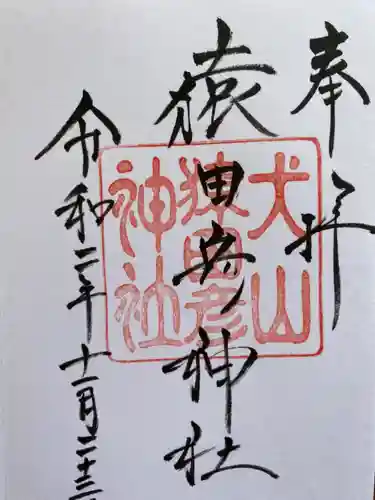 奉拝
猿田彦神社
犬山
猿田彦
神社
令和二年十一月二十三